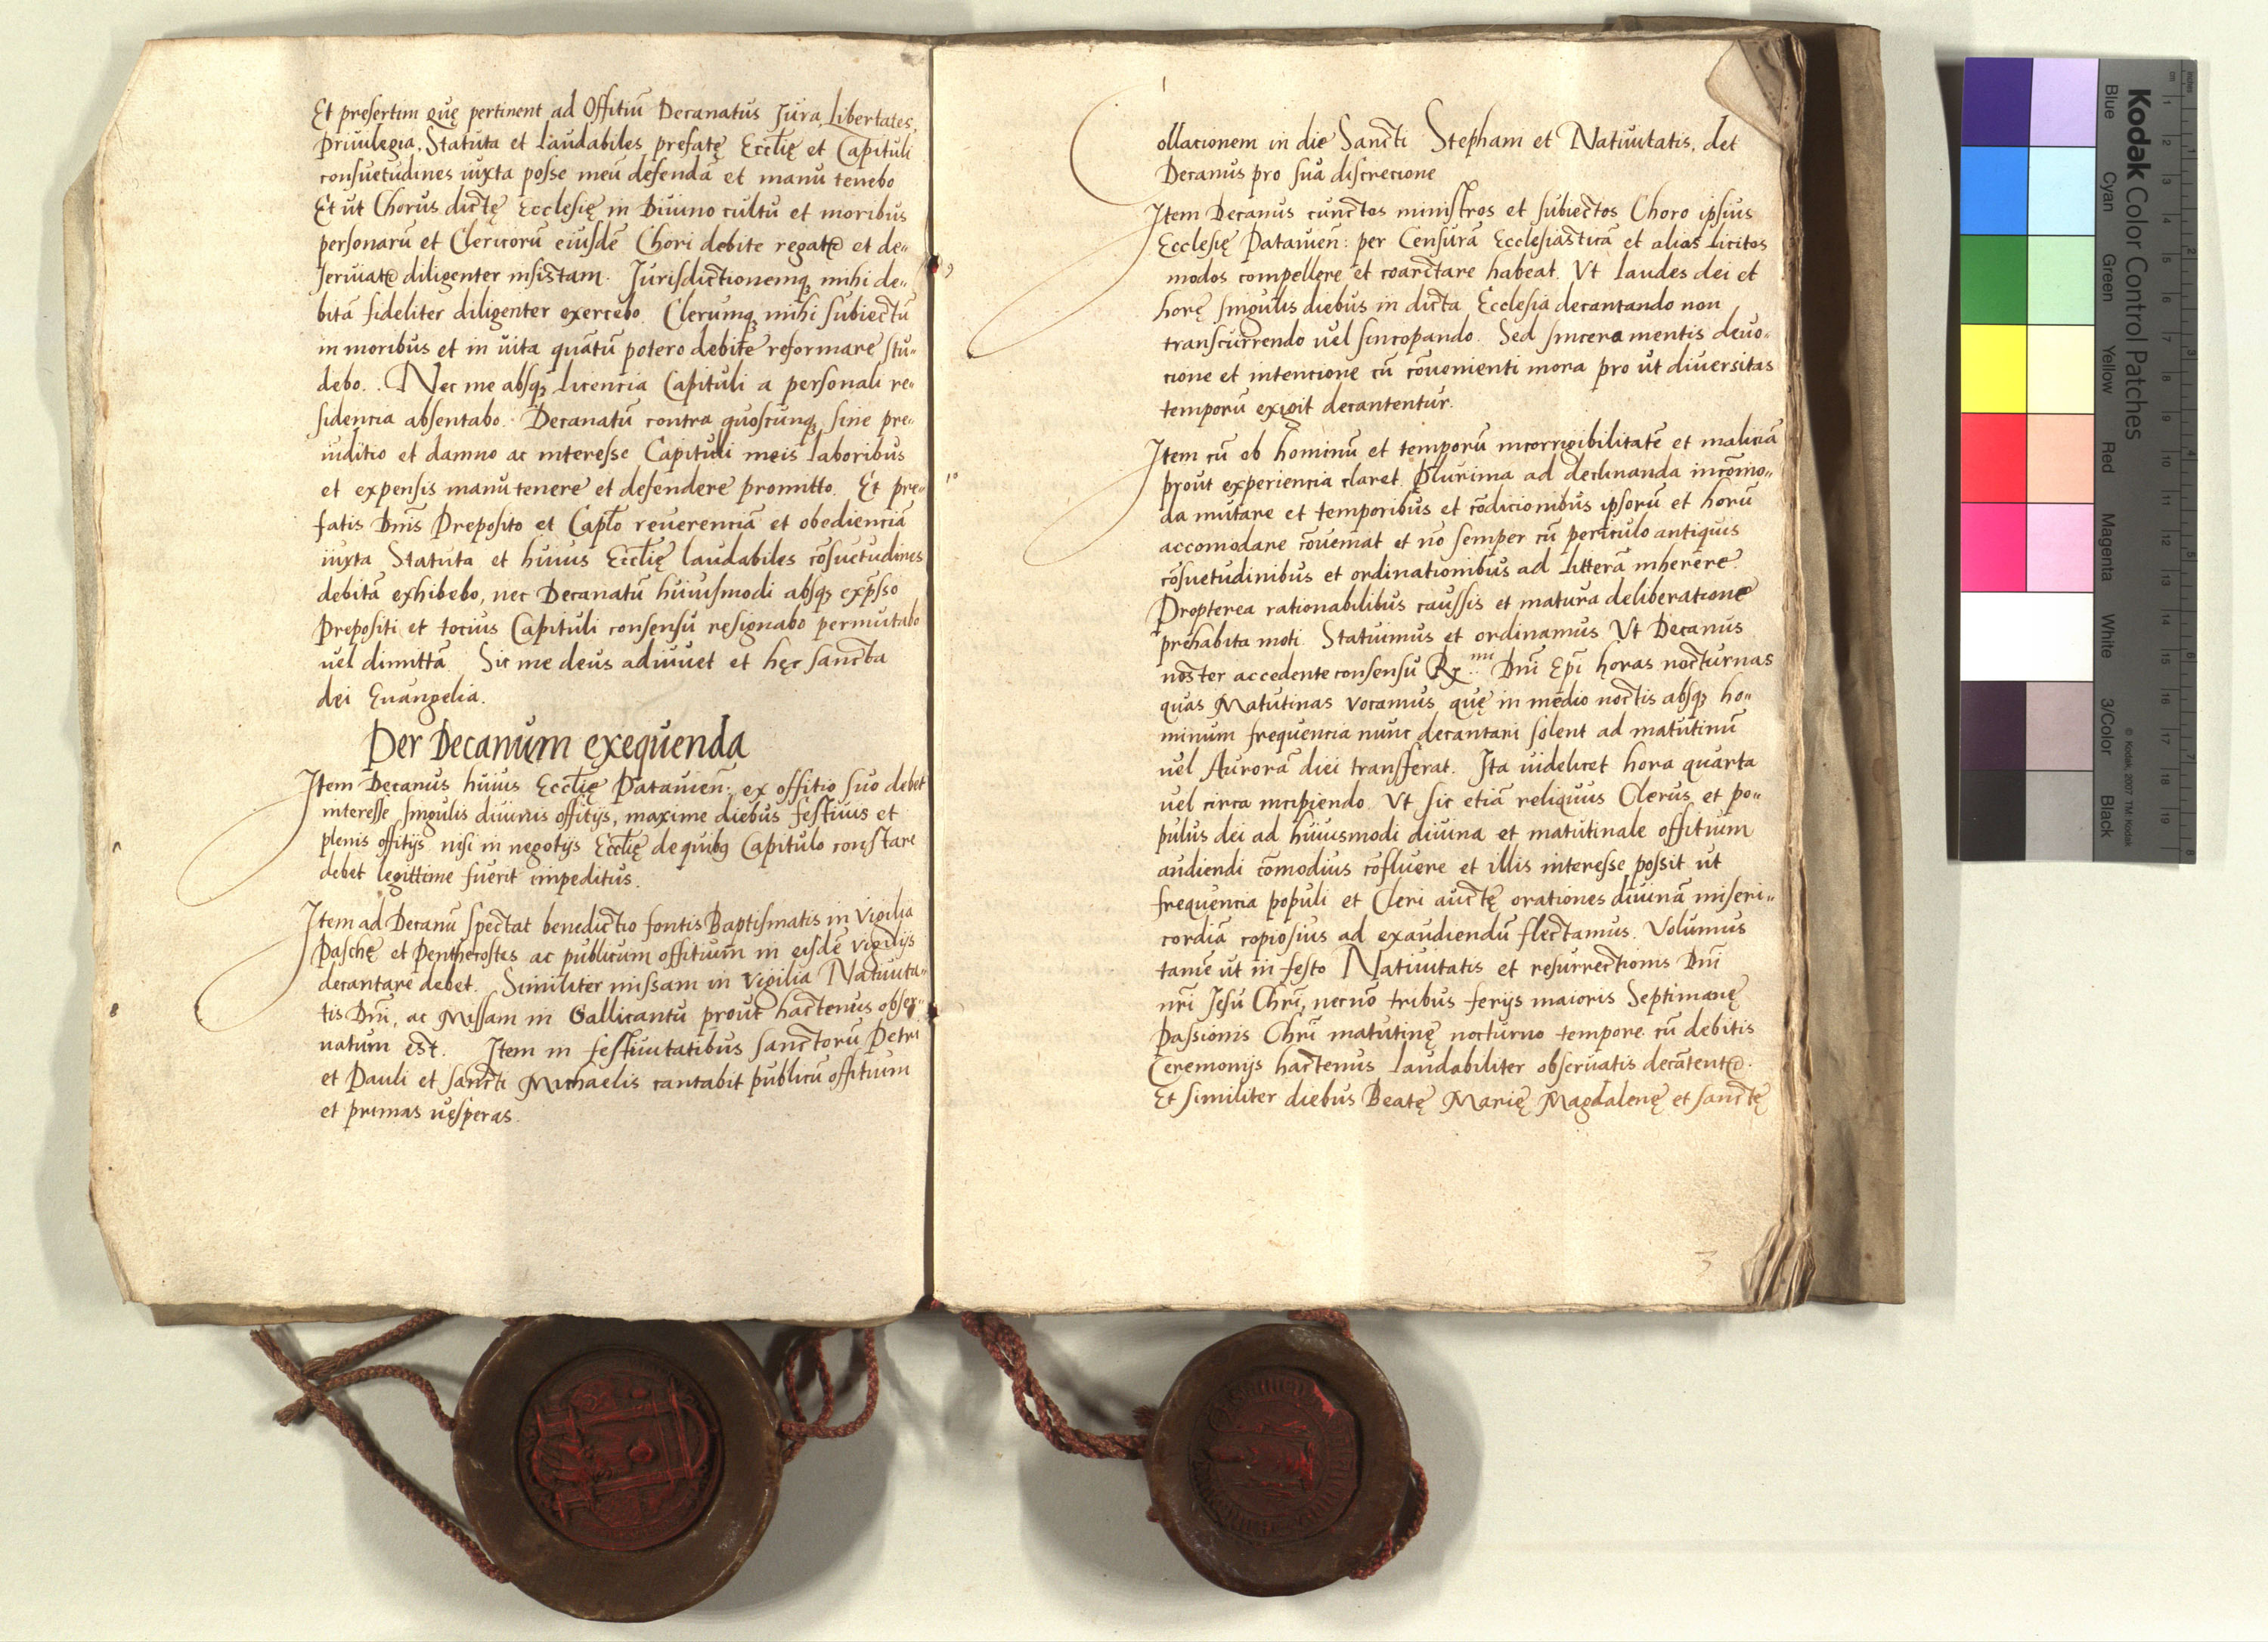 Et presertim quę pertinent ad Offitiū Decanatus Jura, Libertates,
Priuilegia, Statuta et laudabiles prefatę Eccl̄ię et Capituli
consuetudines iuxta posse meū defendā et manu tenebo
Et ut Chorus dictę Ecclesię in Diuino cultu et moribus
personarū et Clericorū eiusdē Chori debite regatꝛ et de„
seruatꝛ diligenter insistam. Jurisdictionemqꝫ mihi de„
bitā fideliter diligenter exercebo. Clerumqꝫ mihi subiectū
in moribus et in uita quātū potero debite reformare stu„
debo. . Nec me absqꝫ licencia Capituli a personali re„
sidencia absentabo. Decanatū contra quoscunqꝫ sine pre„
iuditio et damno ac interesse Capituli meis laboribus
et expensis manutenere et defendere promitto. Et pre„
fatis Dn̄is Preposito et Capl̄o reuerenciā et obedienciā
iuxta Statuta et huius Eccl̄ię laudabiles cōsuetudines
debitā exhibebo, nec Decanatū huiusmodi absqꝫ exp̄sso
Prepositi et tocius Capituli consensu resignabo permutabo
uel dimittā. Sic me deus adiuuet et hęc sancta
dei Euangelia.
Per Decanum exequenda
Item Decanus huius Eccl̄ię Patauien̄: ex offitio suo debet
interesse singulis diuinis offitijs, maxime diebus festiuis et
plenis offitijs nisi in negotijs Eccl̄ię de quibꝫ Capitulo constare
debet legittime fuerit impeditus.
Item ad Decanū spectat benedictio fontis Baptismatis in Vigilia
Paschę et Penthecostes ac publicum offitium in eisdē vigilijs
decantare debet. Similiter missam in Vigilia Natiuita„
tis Dn̄i, ac Missam in Gallicantu prout hactenus obser„
uatum est. Item in festiuitatibus sanctorū Petri
et Pauli et sancti Michaelis cantabit publicū offitium
et primas uesperas.
Collacionem in die Sancti Stephani et Natiuitatis, det
Decanus pro sua discrecione
Item Decanus cunctos ministros et subiectos Choro ipsius
Ecclesię Patauien̄: per Censurā Ecclesiasticā et alias licitos
modos compellere et coarctare habeat. Vt laudes dei et
horę singulis diebus in dicta Ecclesia decantando non
transcurrendo uel sincopando. Sed sincera mentis deuo„
cione et intencione cū cōuenienti mora pro ut diuersitas
temporū exigit decantentur.
Item cū ob hominū et temporū incorrigibilitatē et maliciā
prout experiencia claret. Plurima ad declinanda incōmo„
da mutare et temporibus et cōdicionibus ipsorū et horū
accomodare cōueniat et nō semper cū periculo antiquis
cōsuetudinibus et ordinationibus ad litterā inherere.
Propterea rationabilibus caussis et matura deliberatione
prehabita moti. Statuimus et ordinamus Vt Decanus
noster accedente consensu Rᵐⁱ Dn̄i Ep̄i horas nocturnas
quas Matutinas vocamus, quę in medio noctis absqꝫ ho„
minum frequencia nunc decantari solent ad matutinū
uel Aurorā diei transferat. Ita uidelicet hora quarta
uel circa incipiendo. Vt sic etiā reliquus Clerus et po„
pulus dei ad huiusmodi diuina et matutinale offitium
audiendi cōmodius cōfluere et illis interesse possit ut
frequencia populi et Cleri auctę orationes diuinā miseri„
cordiā copiosius ad exaudiendū flectamus. Volumus
tamē ut in festo Natiuitatis et resurrectionis Dn̄i
nr̄i Jesu Chrī, necnō tribus ferijs maioris Septimanę
Passionis Chrī matutinę nocturno tempore cū debitis
Ceremonijs hactenus laudabiliter obseruatis decātentꝛ.
Et similiter diebus Beatę Marię Magdalenę et sanctę
3
Kodak Color Control Patches
Blue Cyan Green Yellow Red Magenta White 3/Color Black
© Kodak, 2007 TM: Kodak
cm 1 2 3 4 5 6 7 8 9 10 11 12 13 14 15 16 17 18 19
inches 1 2 3 4 5 6 7 8